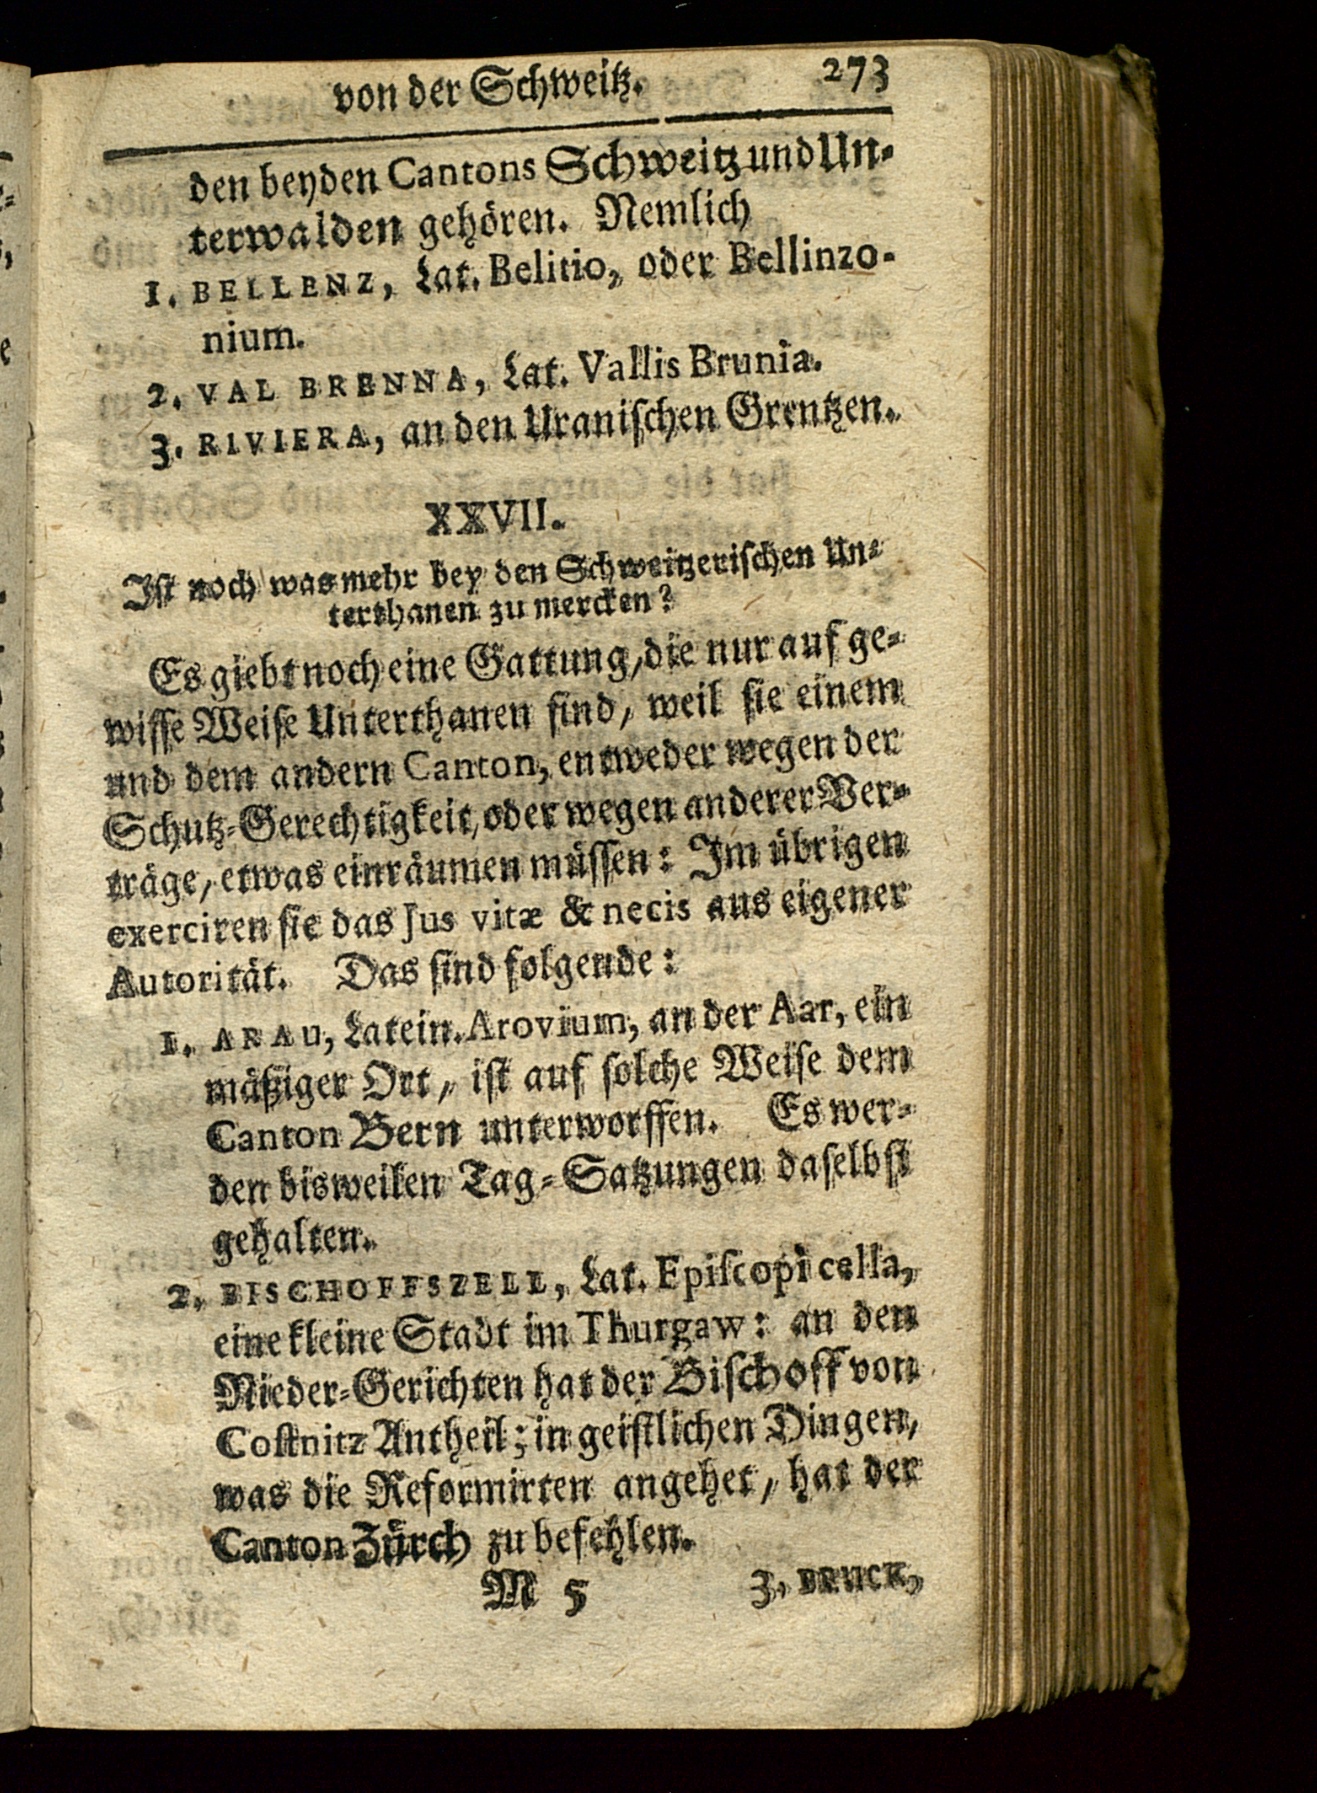 von der Schweitz. 273
den beyden Cantons Schweitz und Un-
terwalden gehören. Nemlich
1. BELLENZ, Lat. Belitio, oder Bellinzo-
nium.
2. VAL BRENNA, Lat. Vallis Brunia.
3. RIVIERA, an den Uraniſchen Grentzen.
XXVII.
Iſt noch was mehr bey den Schweitzeriſchen Un-
terthanen zu mercken?
Es giebt noch eine Gattung, die nur auf ge-
wiſſe Weiſe Unterthanen ſind, weil ſie einem
und dem andern Canton, entweder wegen der
Schutz-Gerechtigkeit, oder wegen anderer Ver-
träge, etwas einräumen müſſen: Im übrigen
exerciren ſie das Jus vitæ & necis aus eigener
Autorität. Das ſind folgende:
1. ARAU, Latein. Arovium, an der Aar, ein
mäßiger Ort, iſt auf ſolche Weiſe dem
Canton Bern unterworffen. Es wer-
den bisweilen Tag-Satzungen daſelbſt
gehalten.
2. BISCHOFFSZELL, Lat. Epiſcopi cella,
eine kleine Stadt im Thurgaw: an den
Nieder-Gerichten hat der Biſchoff von
Coſtnitz Antheil; in geiſtlichen Dingen,
was die Reformirten angehet, hat der
Canton Zürch zu befehlen.
M 5 3. BRUCK,